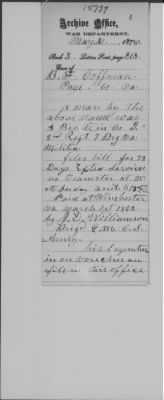 15727
Archive Office,
WAR DEPARTMENT,
May 21, 187
Book 3 Letters Sent, page 313
Case of
B. F. Coffman
Page Co Va
A man by the
above name was
a Private in Co
2nd Regt 7 Brig Va
Militia
files bill for 73
Days Extra services
as Teamster at 25
cts per day amtg 18
Paid at Winchester
Va March 1st 1862
by J. D. Williamson
Brig Q M C. S.
Army.
his signature
is on voucher on
file in this office